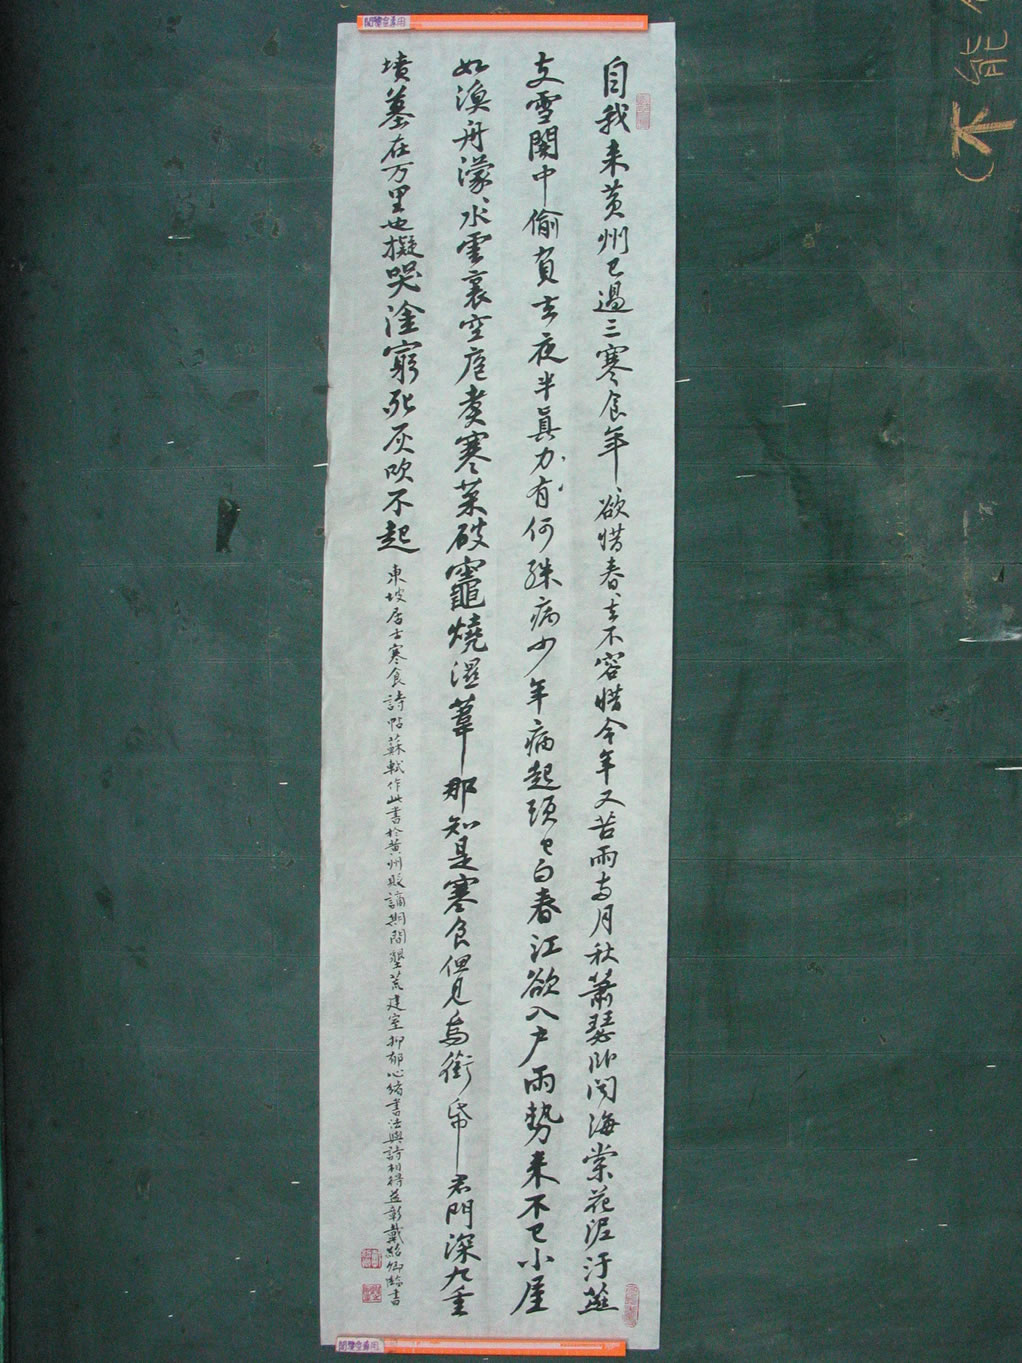 自我來黃州已過三寒食年、欲惜春、去不容惜今年又苦雨兩月秋蕭瑟臥聞海棠花泥汙燕
支雪闇中偷負去夜半真力有何殊病少年病起頭已白春江欲入戶雨勢來不已小屋
如漁舟濛、水雲裏空庖煮寒菜破竈燒濕葦那知是寒食但見烏銜帋君門深九重
墳墓在万里也擬哭塗窮死灰吹不起
東坡居士寒食詩帖蘇軾作此書於黃州貶謫期間墾荒建室抑郁心緒書法與詩相得益彰戴紹卿臨書
(不能